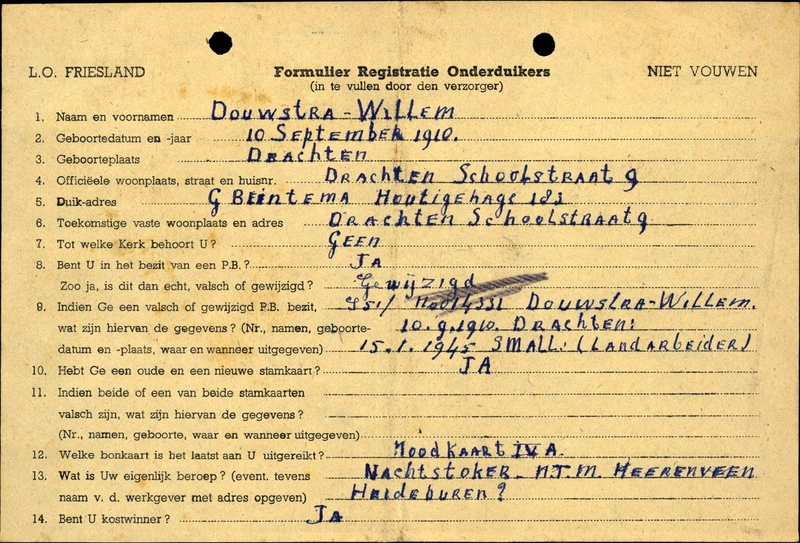 L.O. FRIESLAND Formulier Registratie Onderduikers NIET VOUWEN
(in te vullen door den verzorger)
1. Naam en voornamen DOUWSTRA - WILLEM
2. Geboortedatum en -jaar 10 SEPTEMBER 1910.
3. Geboorteplaats DRACHTEN
4. Officiëele woonplaats, straat en huisnr. DRACHTEN SCHOOLSTRAAT 9
5. Duik-adres G BEINTEMA HOUTIGEHAGE 183
6. Toekomstige vaste woonplaats en adres DRACHTEN SCHOOLSTRAAT 9
7. Tot welke Kerk behoort U? GEEN
8. Bent U in het bezit van een P.B.? JA
Zoo ja, is dit dan echt, valsch of gewijzigd? GEWIJZIGD
9. Indien Ge een valsch of gewijzigd P.B. bezit, DOUWSTRA-WILLEM.
wat zijn hiervan de gegevens? (Nr., namen, geboorte- 10.9.1910. DRACHTEN:
datum en -plaats, waar en wanneer uitgegeven) 15.1.1945 SMALL: (LANDARBEIDER)
10. Hebt Ge een oude en een nieuwe stamkaart? JA
11. Indien beide of een van beide stamkaarten
valsch zijn, wat zijn hiervan de gegevens?
(Nr., namen, geboorte, waar en wanneer uitgegeven)
12. Welke bonkaart is het laatst aan U uitgereikt? NOODKAART IV A.
13. Wat is Uw eigenlijk beroep? (event. tevens NACHTSTOKER - N.T.M. HEERENVEEN
naam v. d. werkgever met adres opgeven) HEIDEBUREN?
14. Bent U kostwinner? JA